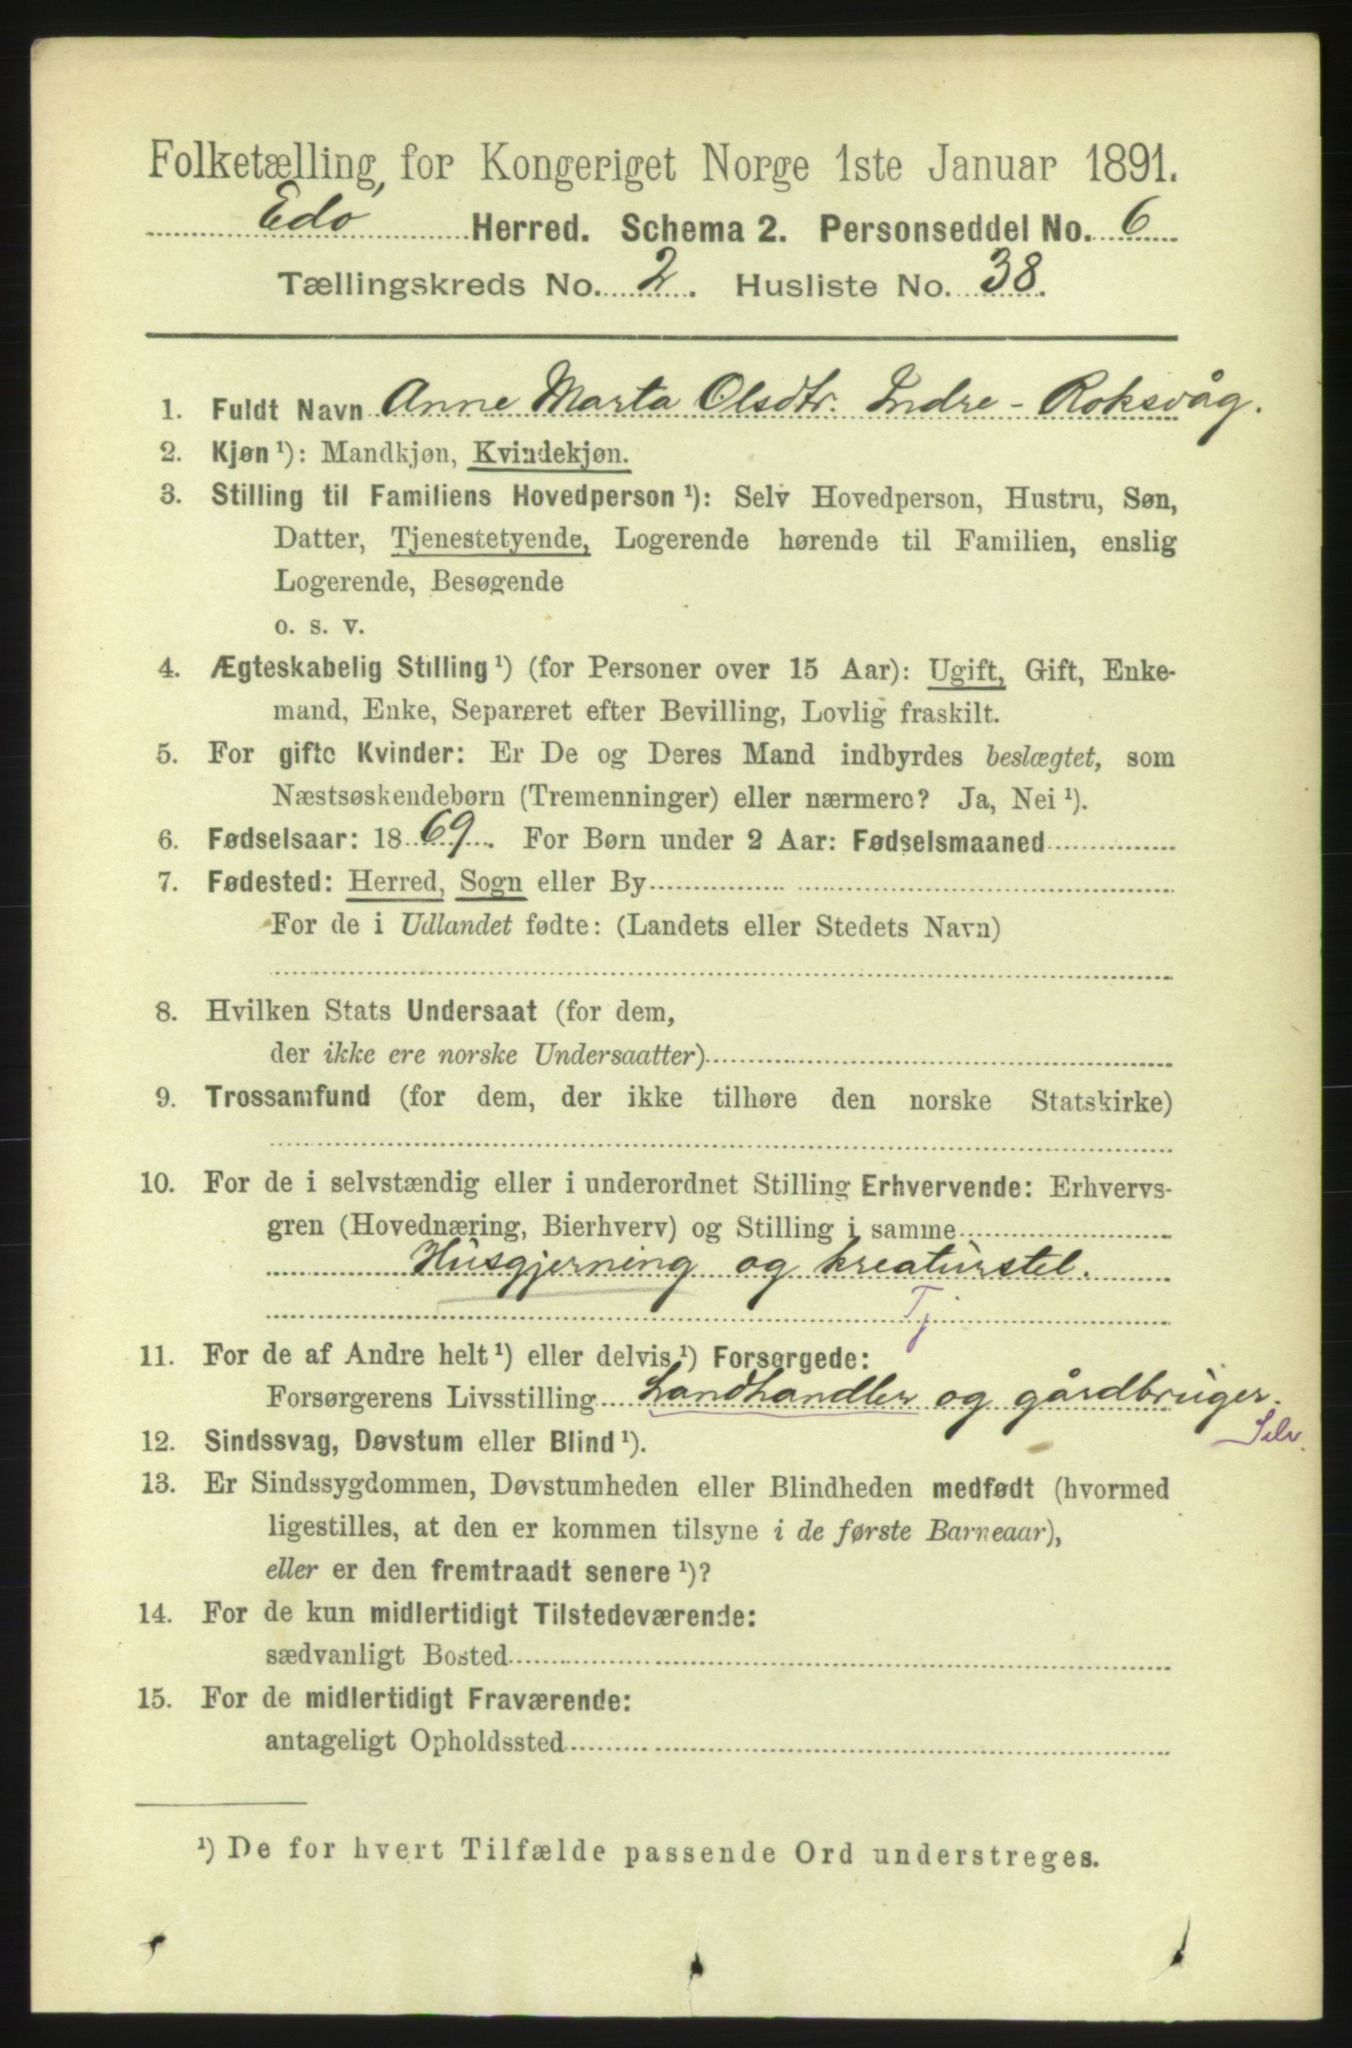 Folketælling for Kongeriget Norge 1ste Januar 1891.
Edø Herred. Schema 2. Personseddel No. 6
Tællingskreds No. 2. Husliste No. 38.
1. Fuldt Navn Anne Marta Olsdtr. Indre - Roksvåg.
2. Kjøn ¹): Mandkjøn, Kvindekjøn.
3. Stilling til Familiens Hovedperson ¹): Selv Hovedperson, Hustru, Søn,
Datter, Tjenestetyende, Logerende hørende til Familien, enslig
Logerende, Besøgende
o. s. v.
4. Ægteskabelig Stilling ¹) (for Personer over 15 Aar): Ugift, Gift, Enke-
mand, Enke, Separeret efter Bevilling, Lovlig fraskilt.
5. For gifte Kvinder: Er De og Deres Mand indbyrdes beslægtet, som
Næstsøskendebørn (Tremenninger) eller nærmere? Ja, Nei ¹).
6. Fødselsaar: 1869. For Børn under 2 Aar: Fødselsmaaned
7. Fødested: Herred, Sogn eller By
For de i Udlandet fødte: (Landets eller Stedets Navn)
8. Hvilken Stats Undersaat (for dem,
der ikke ere norske Undersaatter)
9. Trossamfund (for dem, der ikke tilhøre den norske Statskirke)
10. For de i selvstændig eller i underordnet Stilling Erhvervende: Erhvervs-
gren (Hovednæring, Bierhverv) og Stilling i samme
Husgjerning og kreaturstel.
Tj
11. For de af Andre helt ¹) eller delvis ¹) Forsørgede:
Forsørgerens Livsstilling Landhandler og gårdbruger.
Selv.
12. Sindssvag, Døvstum eller Blind ¹).
13. Er Sindssygdommen, Døvstumheden eller Blindheden medfødt (hvormed
ligestilles, at den er kommen tilsyne i de første Barneaar),
eller er den fremtraadt senere ¹)?
14. For de kun midlertidigt Tilstedeværende:
sædvanligt Bosted
15. For de midlertidigt Fraværende:
antageligt Opholdssted
¹) De for hvert Tilfælde passende Ord understreges.